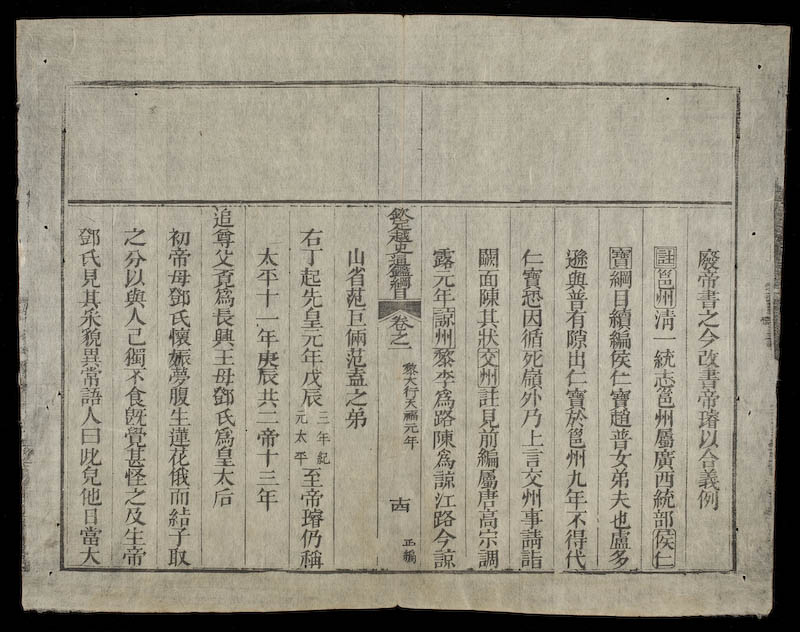 廢帝書之今改書帝璿以合義例
註邕州清一統志邕州屬廣西統部侯仁
寶綱目續編侯仁寶趙普女弟夫也盧多
遜與普有隙出仁寶於邕州九年不得代
仁寶恐因循死嶺外乃上言交州事請詣
闕面陳其狀交州註見前編屬唐高宗調
露元年諒州黎李爲路陳爲諒江路今諒
欽定越史通鑑綱目 卷之一 黎大行天福元年 正編
山省范巨倆范盍之弟
右丁起先皇元年戊辰三年紀元太平至帝璿仍稱
太平十一年庚辰共二帝十三年
追尊父爲長興王母鄧氏爲皇太后
初帝母鄧氏懷娠夢腹生蓮花俄而結子取
之分以與人己獨不食旣覺甚怪之及生帝
鄧氏見其采貌異常語人曰此兒他日當大